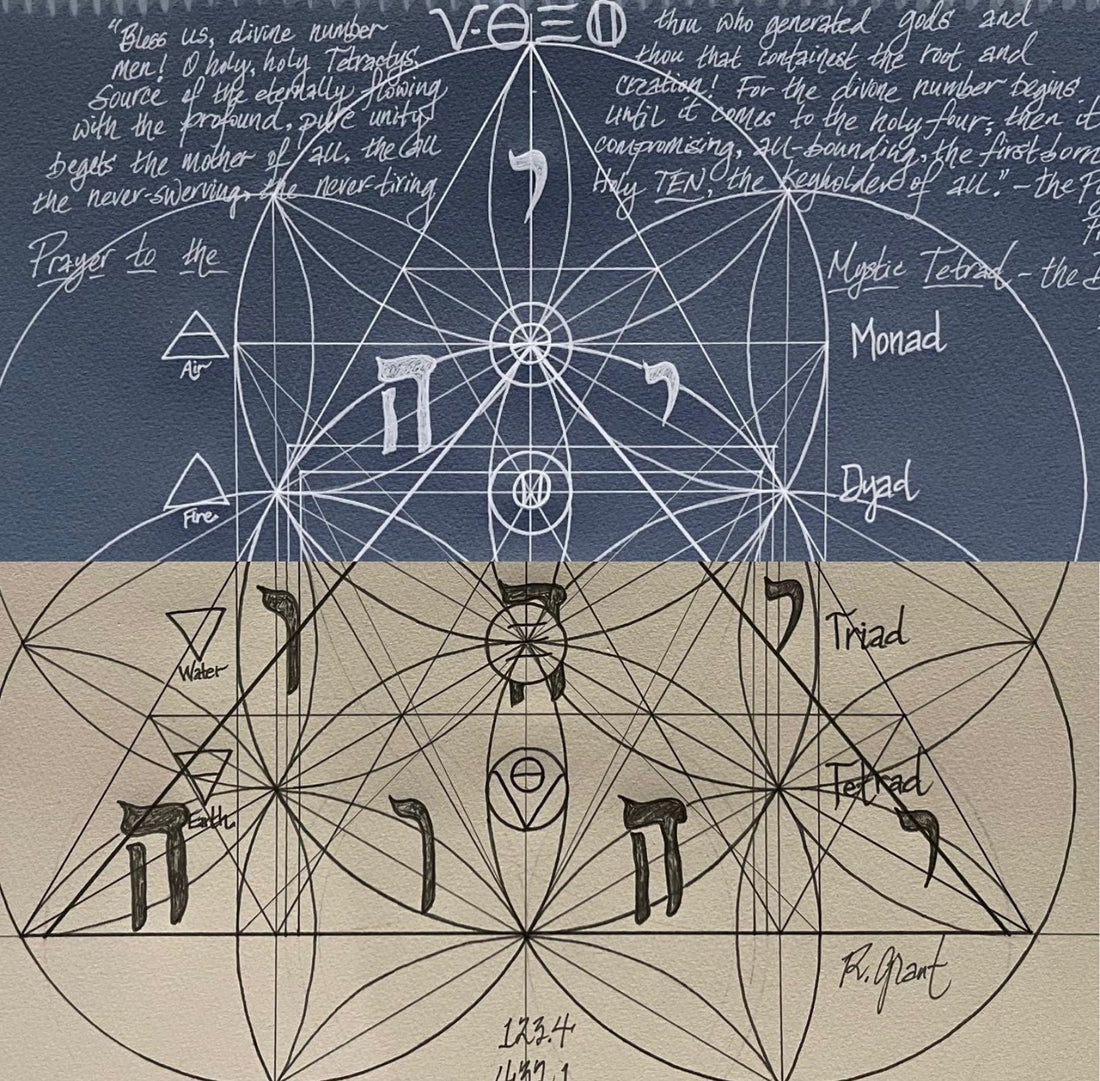 "Bless us, divine number thou who generated gods and
men! O holy, holy Tetractys, thou that containest the root and
Source of the eternally flowing creation! For the divine number begins
with the profound, pure unity until it comes to the holy four; then it
begets the mother of all, the all compromising, all-bounding, the first born
the never-swerving, the never-tiring Holy TEN, the keyholder of all." - the
י
Prayer to the Mystic Tetrad - the
Air Monad
י ה
Fire Dyad
Water י ה ו Triad
Tetrad
Earth
י ה ו ה
R. Grant
123.4